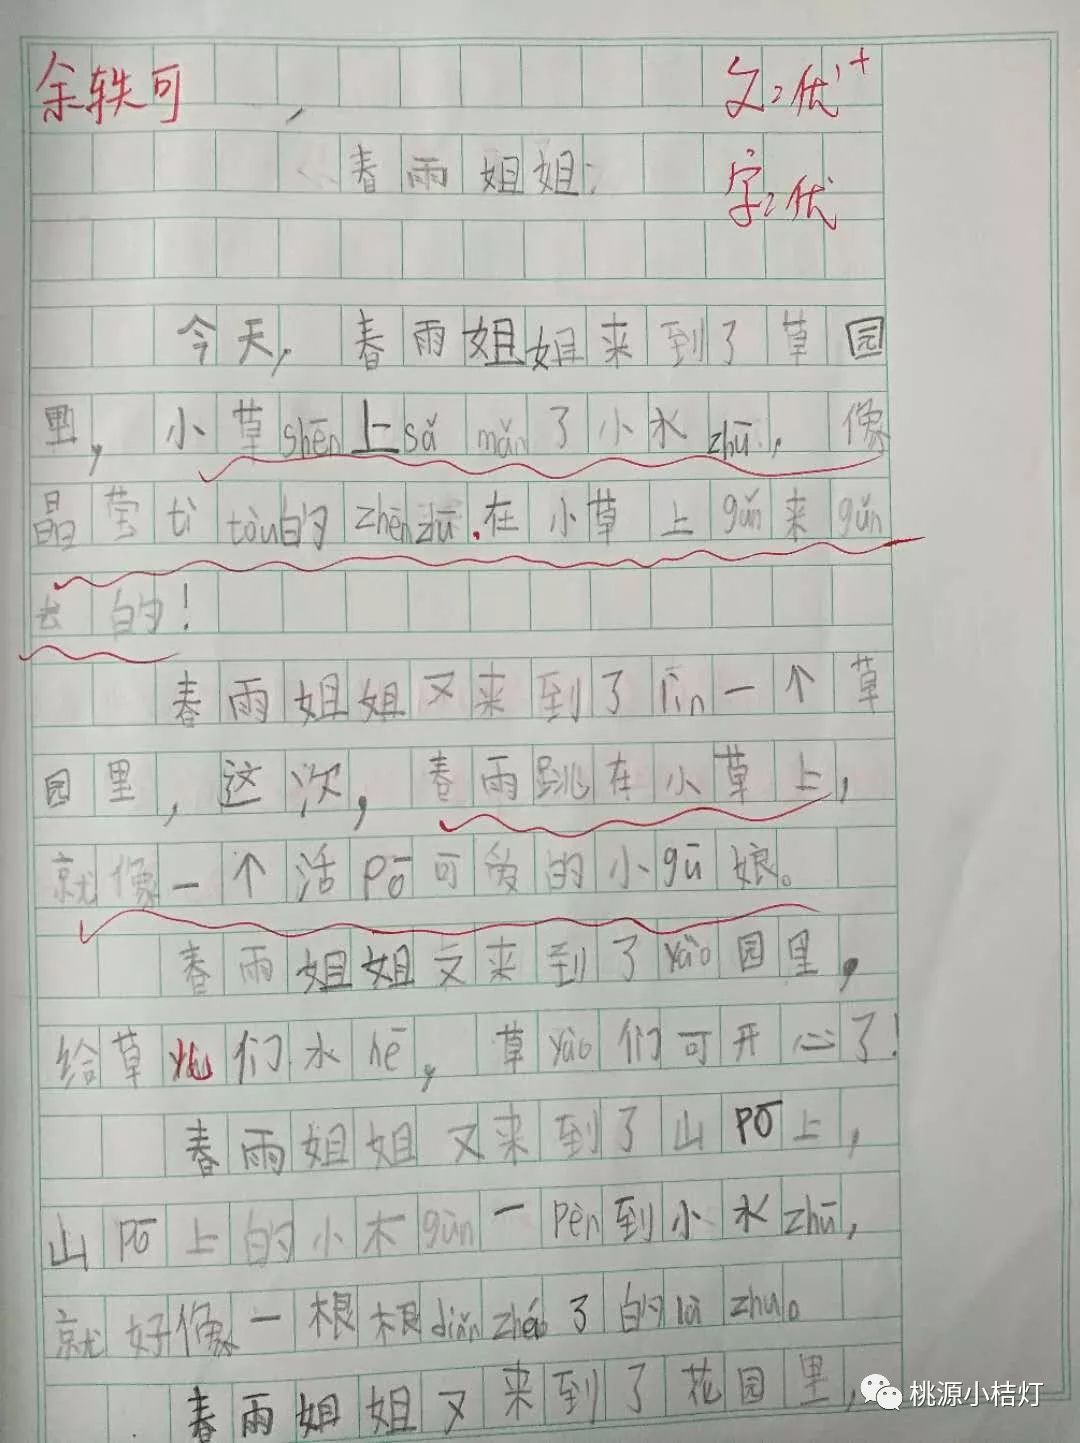 余轶可 文:优+
春雨姐姐
字:优
今天,春雨姐姐来到了草园
里,小草shēn上sǎ mǎn了小水zhū,像
晶莹tì tòu的zhēnzhū.在小草上gǔn来gǔn
去的!
春雨姐姐又来到了lìn一个草
园里,这次,春雨跳在小草上,
就像一个活Pō可爱的小gū娘。
春雨姐姐又来到了yào园里,
给草yào们水hē,草yào们可开心了!
春雨姐姐又来到了山Pō上,
山Pō上的小木gùn一Pèn到小水zhū,
就好像一根根diǎn zháo了的là zhu。
春雨姐姐又来到了花园里,
桃源小桔灯